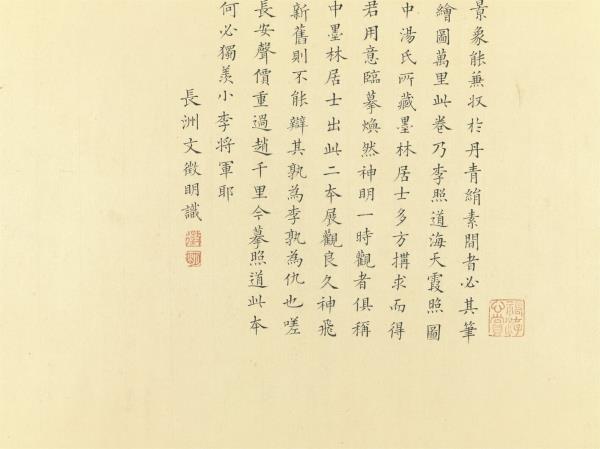 景象能兼収於丹青絹素間者必其筆
繪圖萬里此卷乃李照道海天霞照圖
中湯氏所藏墨林居士多方搆求而得
君用意臨摹煥然神明一時觀者俱稱
中墨林居士出此二本展觀良久神飛
新舊則不能辯其孰為李孰為仇也嗟
長安聲價重過趙千里今摹照道此本
何必獨羨小李将軍耶
長洲文徵明識
徵明